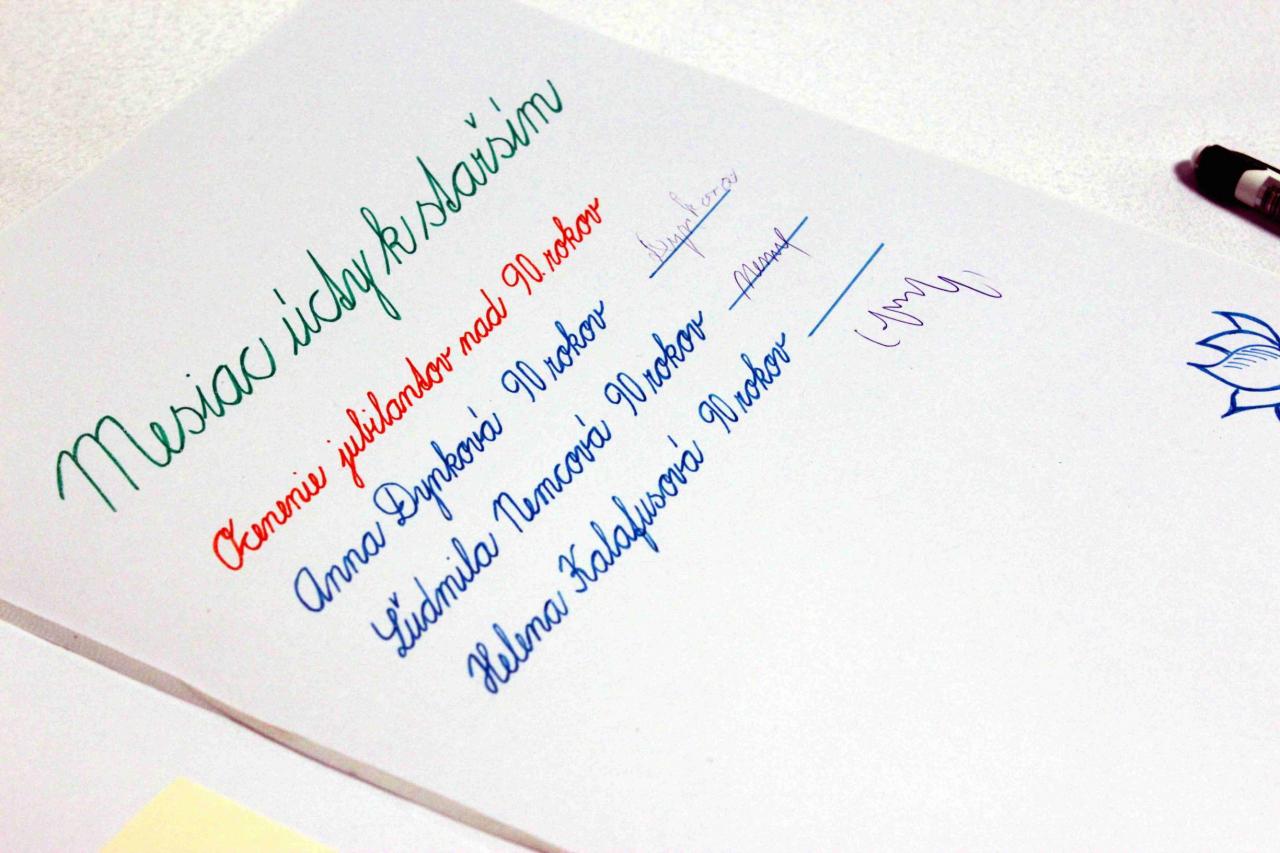 Mesiac úcty k starším
Ocenenie jubilantov nad 90. rokov
Anna Dynková 90 rokov
Ľudmila Nemcová 90 rokov
Helena Kalafusová 90 rokov